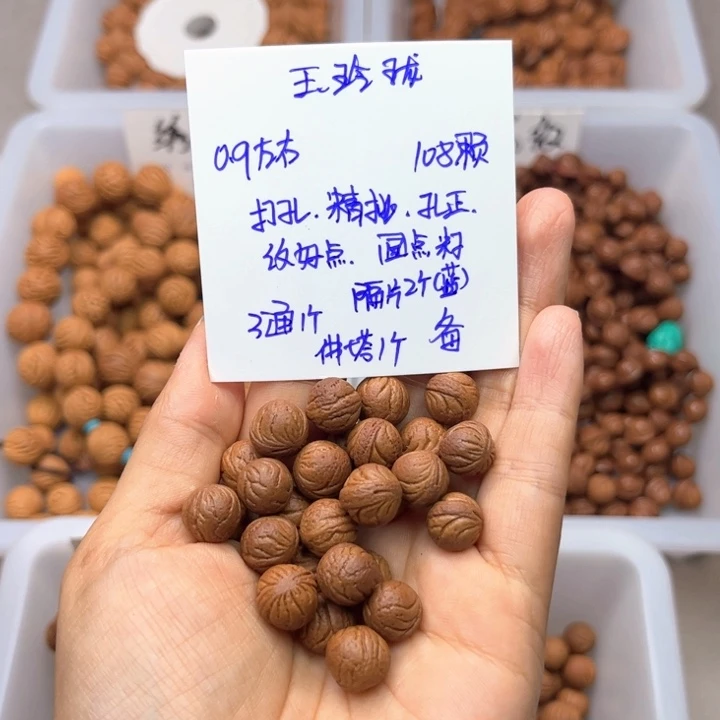 王玲珑
0.9左右 108颗
打孔.精抛.孔正.
纹好点. 回点籽
隔片2个(蓝)
3通1个
佛塔1个 备